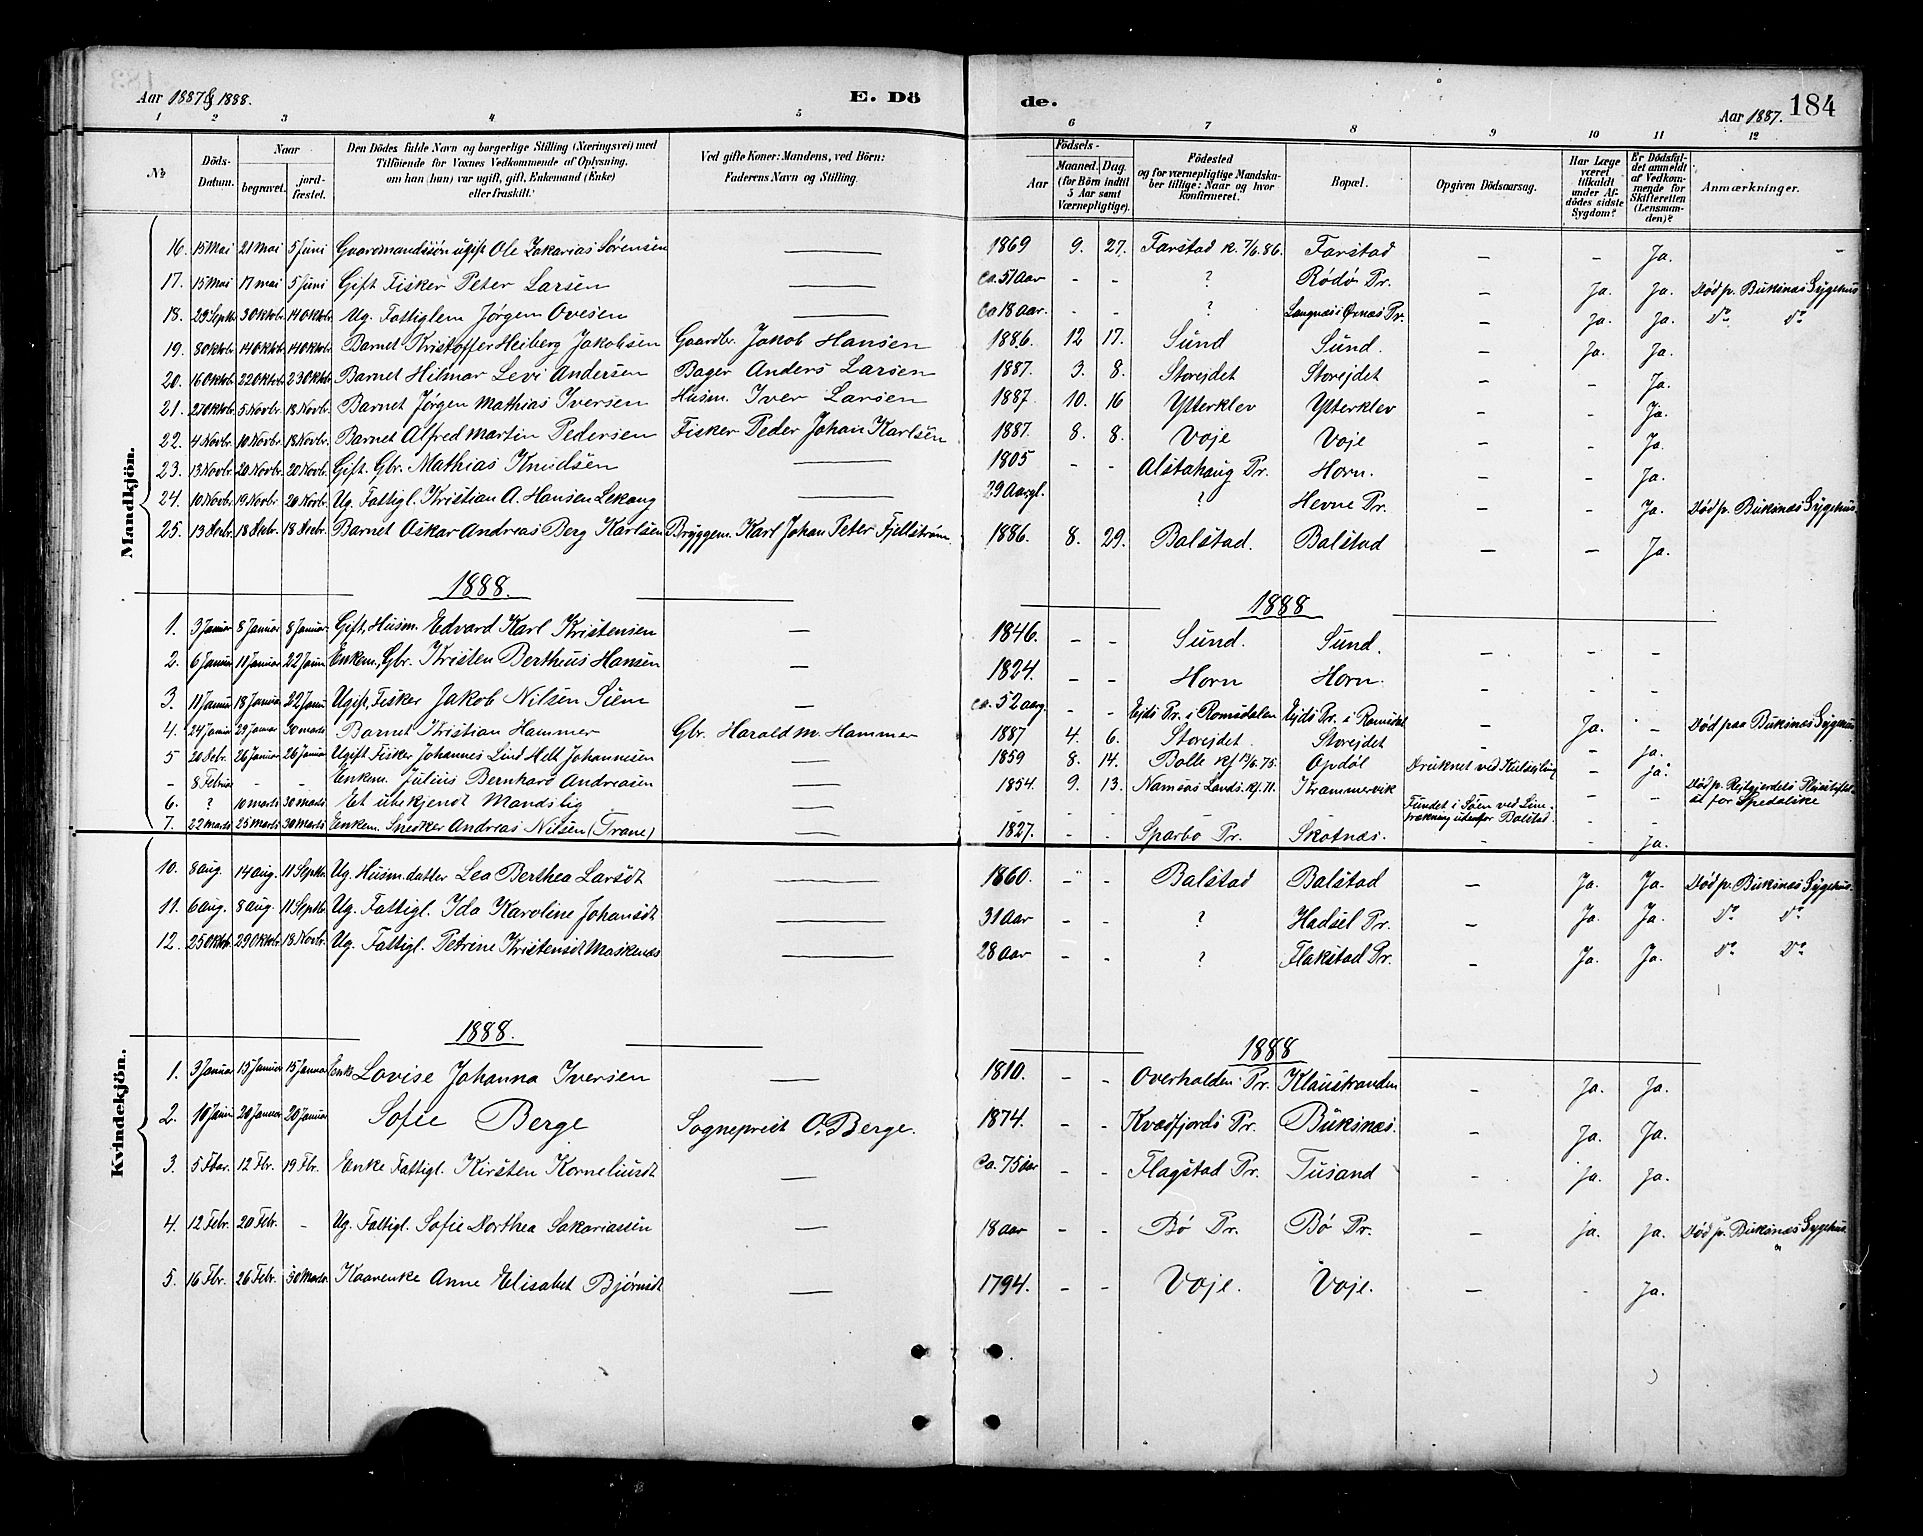 Aar 1887 & 1888. E. Dö de. Aar 1887. 184
1 2 3 4 5 6 7 8 9 10 11 12
No Döds-Datum. Naar begravet. jord-fæstet. Den Dödes fulde Navn og borgerlige Stilling (Næringsvei) med Tilföiende for Voxnes Vedkommende af Oplysning, om han (hun) var ugift, gift, Enkemand (Enke) eller fraskilt. Ved gifte Koner: Mandens, ved Börn: Faderens Navn og Stilling. Födsels- Aar Maaned. Dag. (for Börn indtil 5 Aar samt Værnepligtige). Födested og for værnepligtige Mandskaber tillige: Naar og hvor konfirmeret. Bopæl. Opgiven Dödsaarsag. Har Læge været tilkaldt under Afdödes sidste Sygdom? Er Dödsfaldet anmeldt af Vedkommende for Skifteretten (Lensmanden)? Anmærkninger.
Mandkjön.
16. 15 Mai 21 Mai 5 Juni Gaardmandssøn ugift Ole Zakarias Sørensen — 1869 9. 27. Farstad k. 7/6.86. Farstad - - Ja. -
17. 15 Mai 17 mai 5 Juni Gift Fisker Peter Larsen — ca. 51 Aar - - ? Rødø Pr. - Ja. Ja. Død p. Buksnæs Sygehus
18. 29 Septb 3 Oktbr 14 Oktbr Ug. Fattiglem Jørgen Ovesen — ca 18 aar. - - ? Langnæs i Ørnæs Pr. - Ja. Ja. Do Do
19. 8 Oktbr 14 Oktbr 14 Oktbr Barnet Kristoffer Heiberg Jakobsen Gaardbr. Jakob Hansen 1886. 12 17. Sund Sund. - Ja. Ja.
20. 16 Oktbr 22 Oktbr 23 Oktbr Barnet Hilmar Levi Andersen Bager Anders Larsen 1887. 3. 8. Storejdet Storejdet - - Ja.
21. 27 Oktbr 5 Novbr 18 Novbr. Barnet Jørgen Mathias Iversen Husm. Iver Larsen 1887 10. 16 Ytterklev Ytterklev - - Ja.
22. 4 Novbr 10 Novbr 18 Novbr. Barnet Alfred Martin Pedersen Fisker Peder Johan Karlsen 1887. 8. 8. Voje Voje - - Ja.
23. 13 Novbr. 20 Novbr. 20 Novbr. Gift. Gbr. Mathias Knudsen — 1805 - - Alstahaug Pr. Horn. - - Ja.
24. 10 Novbr. 19 Novbr. 20 Novbr. Ug. Fattigl. Kristian A. Hansen Lekang 29 Aargl. ? Hevne Pr. - - Ja. Død p. Buksnæs Sygehus.
25. 13 Decbr. 18 Decbr. 18 Decbr. Barnet Oskar Andreas Berg Karlsen Bryggem. Karl Johan Peter Fjellstrøm. 1886. 8. 29. Balstad. Balstad - - Ja.
1888. 1888
1. 3 Januar 8 Januar 8 Januar. Gift, Husm. Edvard Karl Kristensen — 1846. - - Sund. Sund. - - -
2. 6 Januar 11 Januar 22 Janu Enkem, Gbr. Kristen Bertheus Hansen — 1824. - - Horn Horn. - - -
3. 11 Januar 18 Januar 22 Janu Ugift, Fisker Jakob Nilsen Siem — ca. 52 aarg. - - Ejds Pr. i Romsdalen Ejds Pr. i Romsdal - Ja. - Død paa Buksnæs Sygehus
4. 24 Janua 29 Januar 30 marts Barnet Kristian Hammer Gbr. Harald M. Hammer 1887 4. 6. Storejdet. Storejdet - - ja.
5 20 Debr. 26 Januar 26 Januar Ugift Fisker Johannes Lind Helt Johannesen — 1859 8. 14. Bolle kf 13/6.75. Opdøl Druknet ved - ja.
- 8 Februar - - Enkem. Julius Bernhard Andreasen — 1854. 9. 13. Namsos Lands. kf. 71. Krammervik - - Død p. Rejtgjerdets for Spedalske
6. ? 10 marts 30 marts Et ubekjendt Mandslig — - - - Fundet i Søen ved Line-trækning utenfor Balstad. - -
7. 22 marts 25 Marts 30 Marts Enkem. Snedker Andreas Nilsen (Trane) — 1827. - - Sparbo Pr. Skotnæs. - - Ja.
Kvindekjön.
10. 8 aug. 14 aug. 11 Septbr. Ug. Husm.datter Lea Berthea Larsdt — 1860. - - Balstad Balstad - Ja. Ja. Død p. Buksnæs Sygehus.
11. 6 aug. 8 aug. 11 Septbr. Ug. Fattigl. Ida Karoline Johansdt — 31 Aar - - ? Hadsel Pr. - Ja. Ja. Do Do
12. 25 Oktbr. 29 Oktbr 18 Novbr. Ug. Fattigl. Petrine Kristensdt Maskenæs — 28 Aar - - ? Flakstad Pr. - Ja. Ja. Do Do
1888. 1888
1. 3 Januar 15 Januar 15 Januar Enke Lovise Johanna Iversen — 1810. - - Overhalden Pr. Klaustranden - Ja. Ja.
2. 10 Janu 20 Januar 20 Januar Sofie Berge Sogneprest O. Berge. 1874. - - Kvædfjords Pr. Buksnæs. - Ja. Ja.
3. 5 Fbar. 12 Fbr. 19 Fbr. Enke Fattigl. Kirsten Korneliusdt — Ca. 75 aar - - Flagstad Pr. Tusand - Ja. Ja.
4. 12 Febr. 20 Febr. - Ug. Fattigl. Sofie Dorthea Sakariassen — 18 aar - - Bø Pr. Bø Pr. - ja. ja. Død p. Buksnæs Sygehus.
5. 16 Fbr. 26 Febr. 30 Marts. Kaarenke Anne Elisabet Bjørnsdt — 1794. - - Voje. Voje. - - Ja.